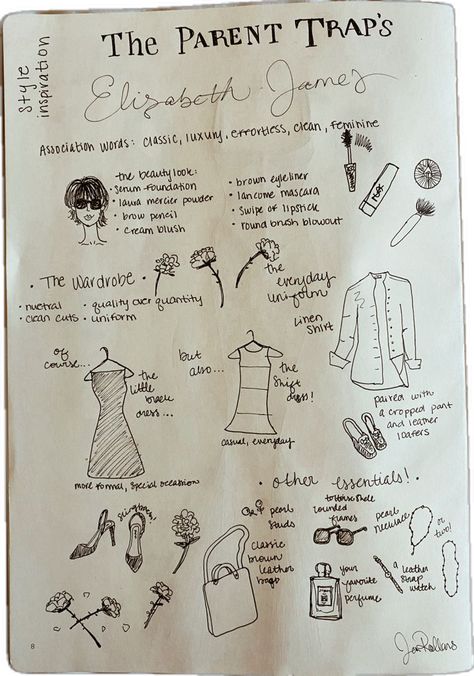 Style
inspiration
THE PARENT TRAP'S
Elizabeth James
Association words: classic, luxury, effortless, clean, feminine
the beauty look:
• serum foundation
• laura mercier powder
• brow pencil
• cream blush
• brown eyeliner
• lancome mascara
• swipe of lipstick
• round brush blowout
• The Wardrobe •
• nuetral
• clean cuts
• quality over quantity
• uniform
the
everyday
uniform
linen
shirt
paired with
a cropped pant
and leather
loafers
of
course...
the
little
black
dress...
more formal, special occassion
but
also...
the
shift
dress!
casual, everyday
• other essentials! •
slingbacks!
pearl
studs
classic
brown
leather
bags
tortoise shell
rounded
frames
pearl
necklace
or
two!
your
favorite
perfume
a
leather
strap
watch
8